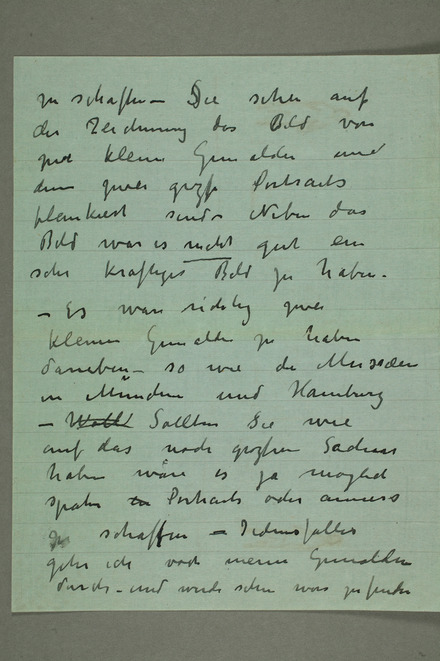 zu schaffen – Sie sehen auf
der Zeichnung das Bild von
zwei kleinen Gemälden und
dann zwei große Portraits
flankiert sind. Neben das
Bild war es nicht gut ein
sehr kräftiges Bild zu haben –
– Es war richtig zwei
kleinen Gemälden zu haben
daneben – so wie die Museen
in München und Hamburg
– Sollten Sie wie
auf das noch großen
haben wäre es ja möglich
später Portraits oder anderes
zu schaffen – Jedenfalls
gehe ich noch meine Gemälden
durch – und werde sehen was zu finden